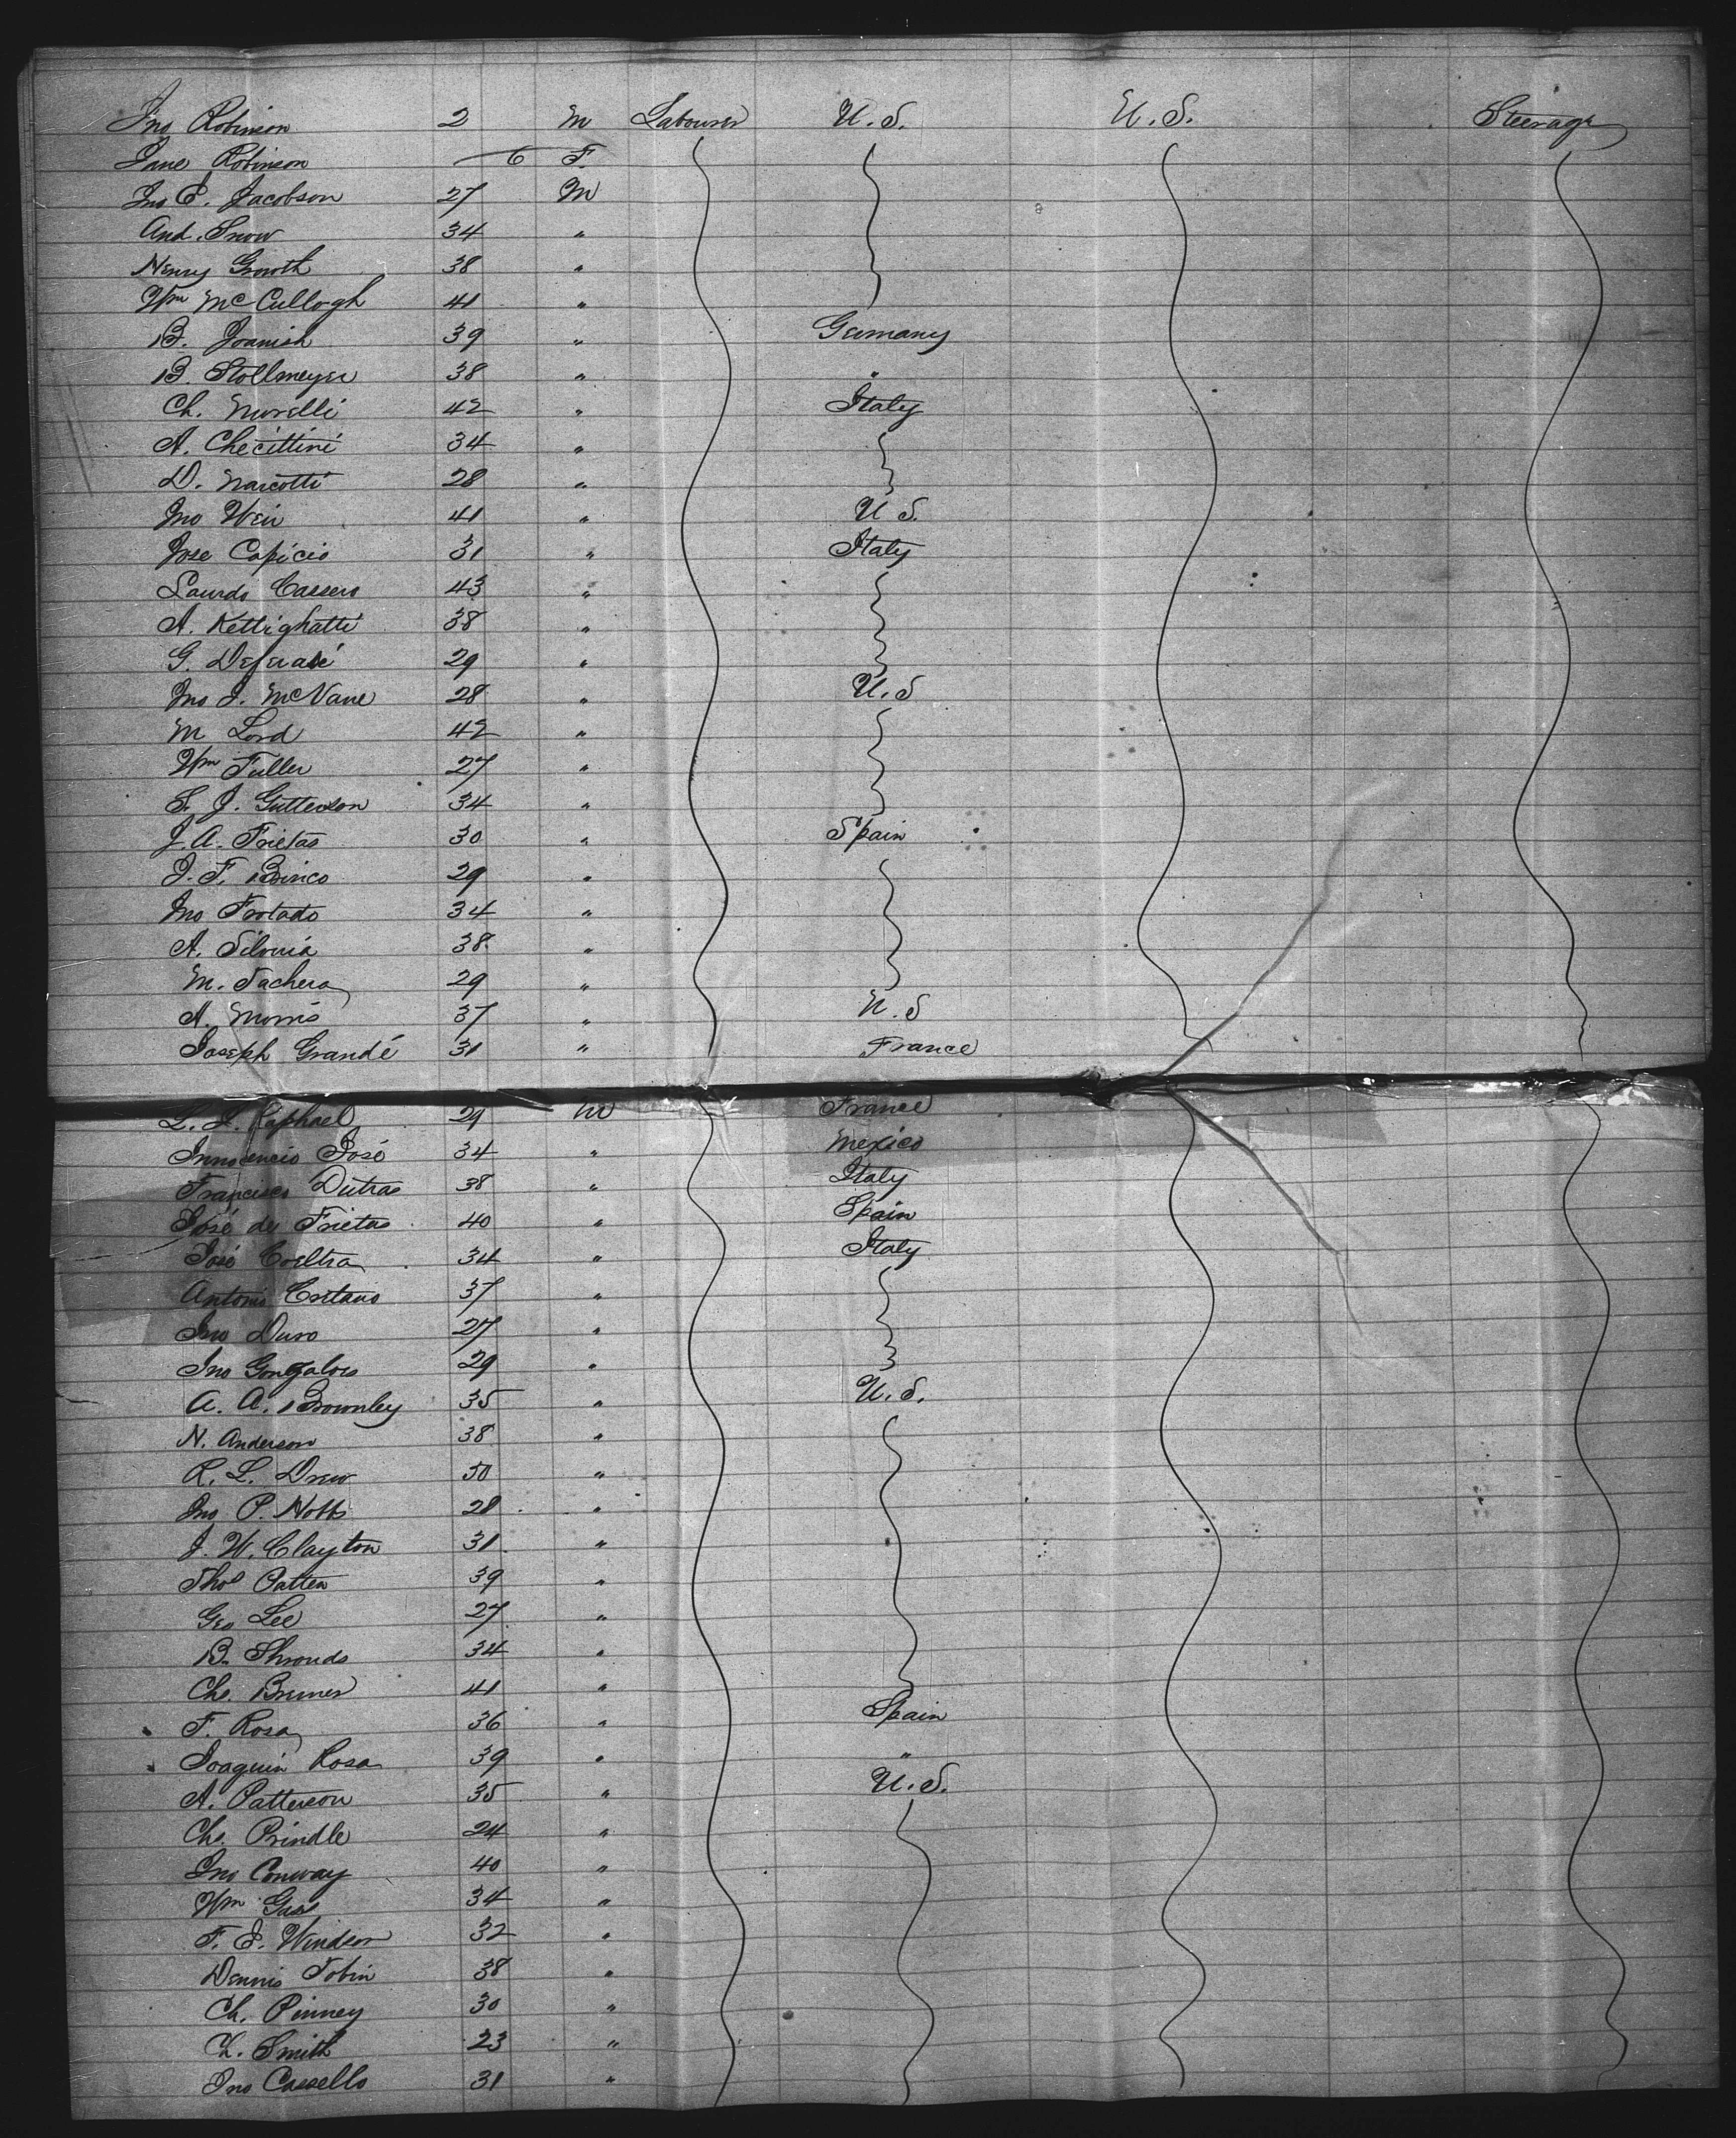 Jno Robinson 2 M Labourer U.S. U.S. Steerage
Jane Robinson 6 F.
Jno E. Jacobson 27 M
And. Snow 34 "
Henry Growth 38 "
Wm McCullogh 41 "
B. Joanish 39 " Germany
B. Stollmeyer 38 " "
Ch. Morelli 42 " Italy
A. Checittini 34 "
D. Narcotti 28 "
Jno Weir 41 " U S.
Jose Capicio 31 " Italy
Laurdo Cassero 43 "
A. Kettighatti 38 "
G. 29 "
Jno J. McVane 28 " U.S
M Lord 42 "
Wm Fuller 27 "
S. J. Gutterson 34 "
J. A. Frietas 30 " Spain
J. F. Binico 29 "
Jno Frotado 34 "
A. Silonia 38 "
M. Tachera 29 "
A. Morris 37 " U.S
Joseph Grandé 31 " France
L. J. Raphael 29 M France
Innocencio José 34 " Mexico
Francisco Dutras 38 " Italy
José de Frietas 40 " Spain
José Coeltra 34 " Italy
Antonio 37 "
Jno Duro 27 "
Jno Gongalves 29 "
A. A. Brownley 35 " U.S.
N. Anderson 38 "
R. L. Drew 50 "
Jno P. Nobbs 28 "
J. W. Clayton 31 "
Thos Patten 39 "
Geo Lee 27 "
B. Shrouds 34 "
Chs. Brumer 41 "
F. Rosa 36 " Spain
Joaquin Rosa 39 " "
A. Patterson 35 " U.S.
Chs. Prindle 24 "
Jno Conway 40 "
Wm Gass 34 "
F. E. Windsor 32 "
Dennis Tobin 38 "
Ch. Pinney 30 "
Ch. Smith 23 "
Jno Cassello 31 "